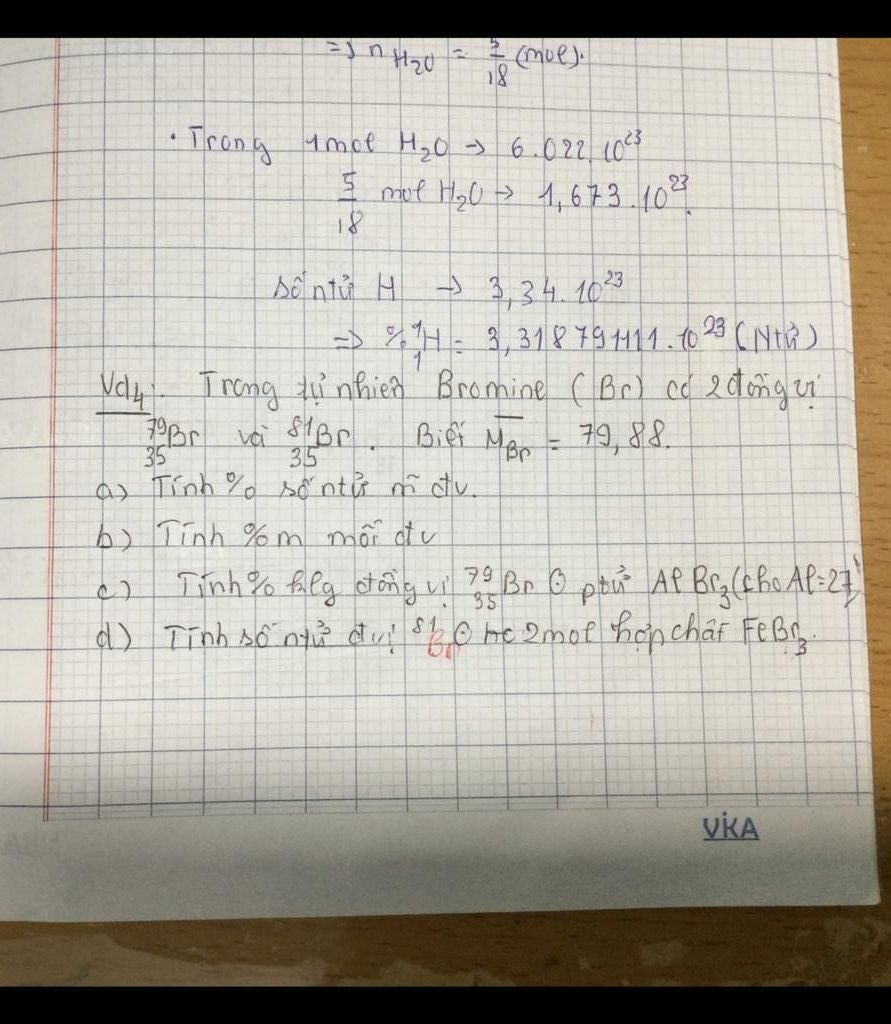 => n H₂O = 5/18 (mol).
• Trong 1mol H₂O → 6.022.10²³
5/18 mol H₂O → 1,673.10²³
Số ntử H → 3,34.10²³
=> % ¹₁H = 3,318791111.10²³ (Ntử)
Vd4: Trong tự nhiên Bromine (Br) có 2 đồng vị
⁷⁹₃₅Br và ⁸¹₃₅Br. Biết M̅Br = 79,88.
a) Tính % số ntử m̃ đv.
b) Tính %m mỗi đv
c) Tính % klg đồng vị ⁷⁹₃₅Br ⊙ ptử AlBr₃ (cho Al=27)
d) Tính số ntử đvị ⁸¹Br ⊙ 2mol hợp chất FeBr₃.
VIKA